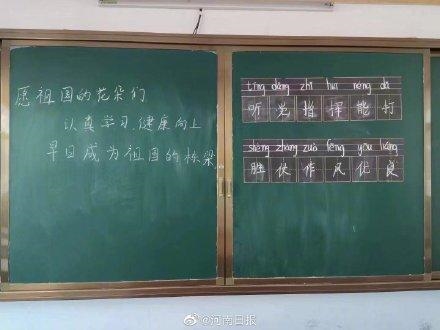 愿祖国的花朵们
认真学习,健康向上
早日成为祖国的栋梁
tīng dǎng zhǐ huī néng dǎ
听党指挥能打
shèng zhàng zuò fēng yōu liáng
胜仗作风优良
@河南日报